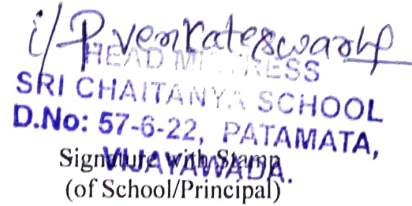 i/P. venkateswarlu
HEAD MISTRESS
SRI CHAITANYA SCHOOL
D.No: 57-6-22, PATAMATA,
VIJAYAWADA.
Signature with Stamp
(of School/Principal)